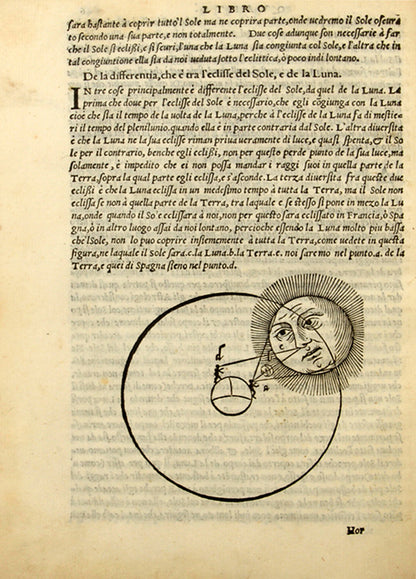 LIBRO
sara bastante à coprir tutto'l Sole ma ne coprira parte, onde uedremo il Sole oscura
to secondo una sua parte, e non totalmente. Due cose adunque son necessarie à far
che il Sole si eclißi, e si scuri, l'una che la Luna sia congiunta col Sole, e l'altra che in
tal congiuntione ella sia da noi ueduta sotto l'eclittica, ò poco indi lontano.
De la differentia, che è tra l'eclisse del Sole, e de la Luna.
IN tre cose principalmente è differente l'eclisse del Sole, da quel de la Luna. La
prima che doue per l'eclisse del Sole è necessario, che egli cōgiunga con la Luna
cioè che sia il tempo de la uolta de la Luna, perche à l'eclisse de la Luna fa di mestie=
ri il tempo del plenilunio, quando ella è in parte contraria dal Sole. L'altra diuersità
è che la Luna ne la sua eclisse riman priua ueramente di luce, e quasi spenta, & il So
le per il contrario, benche egli eclißi, non per questo perde punto de la sua luce, ma
solamente, è impedito che ei non possa mandar i raggi suoi in quella parte de la
Terra, sopra la qual parte egli eclissa, e s'asconde. La terza diuersità fra queste due
eclißi è che la Luna eclissa in un medesimo tempo à tutta la Terra, ma il Sole non
eclissa se non à quella parte de la Terra, tra laquale e se stesso si pone in mezo la Lu
na, onde quando il Sole eclissarà à noi, non per questo sara eclissato in Francia, ò Spa
gna, ò in altro luogo assai da noi lontano, percioche essendo la Luna molto piu bassa
che'l Sole, non lo puo coprire insiememente à tutta la Terra, come uedete in questa
figura, ne laquale il Sole sara.c.la Luna.b.la Terra.e. noi saremo nel punto.a. de la
Terra, e quei di Spagna sieno nel punto.d.
d
a
Hor